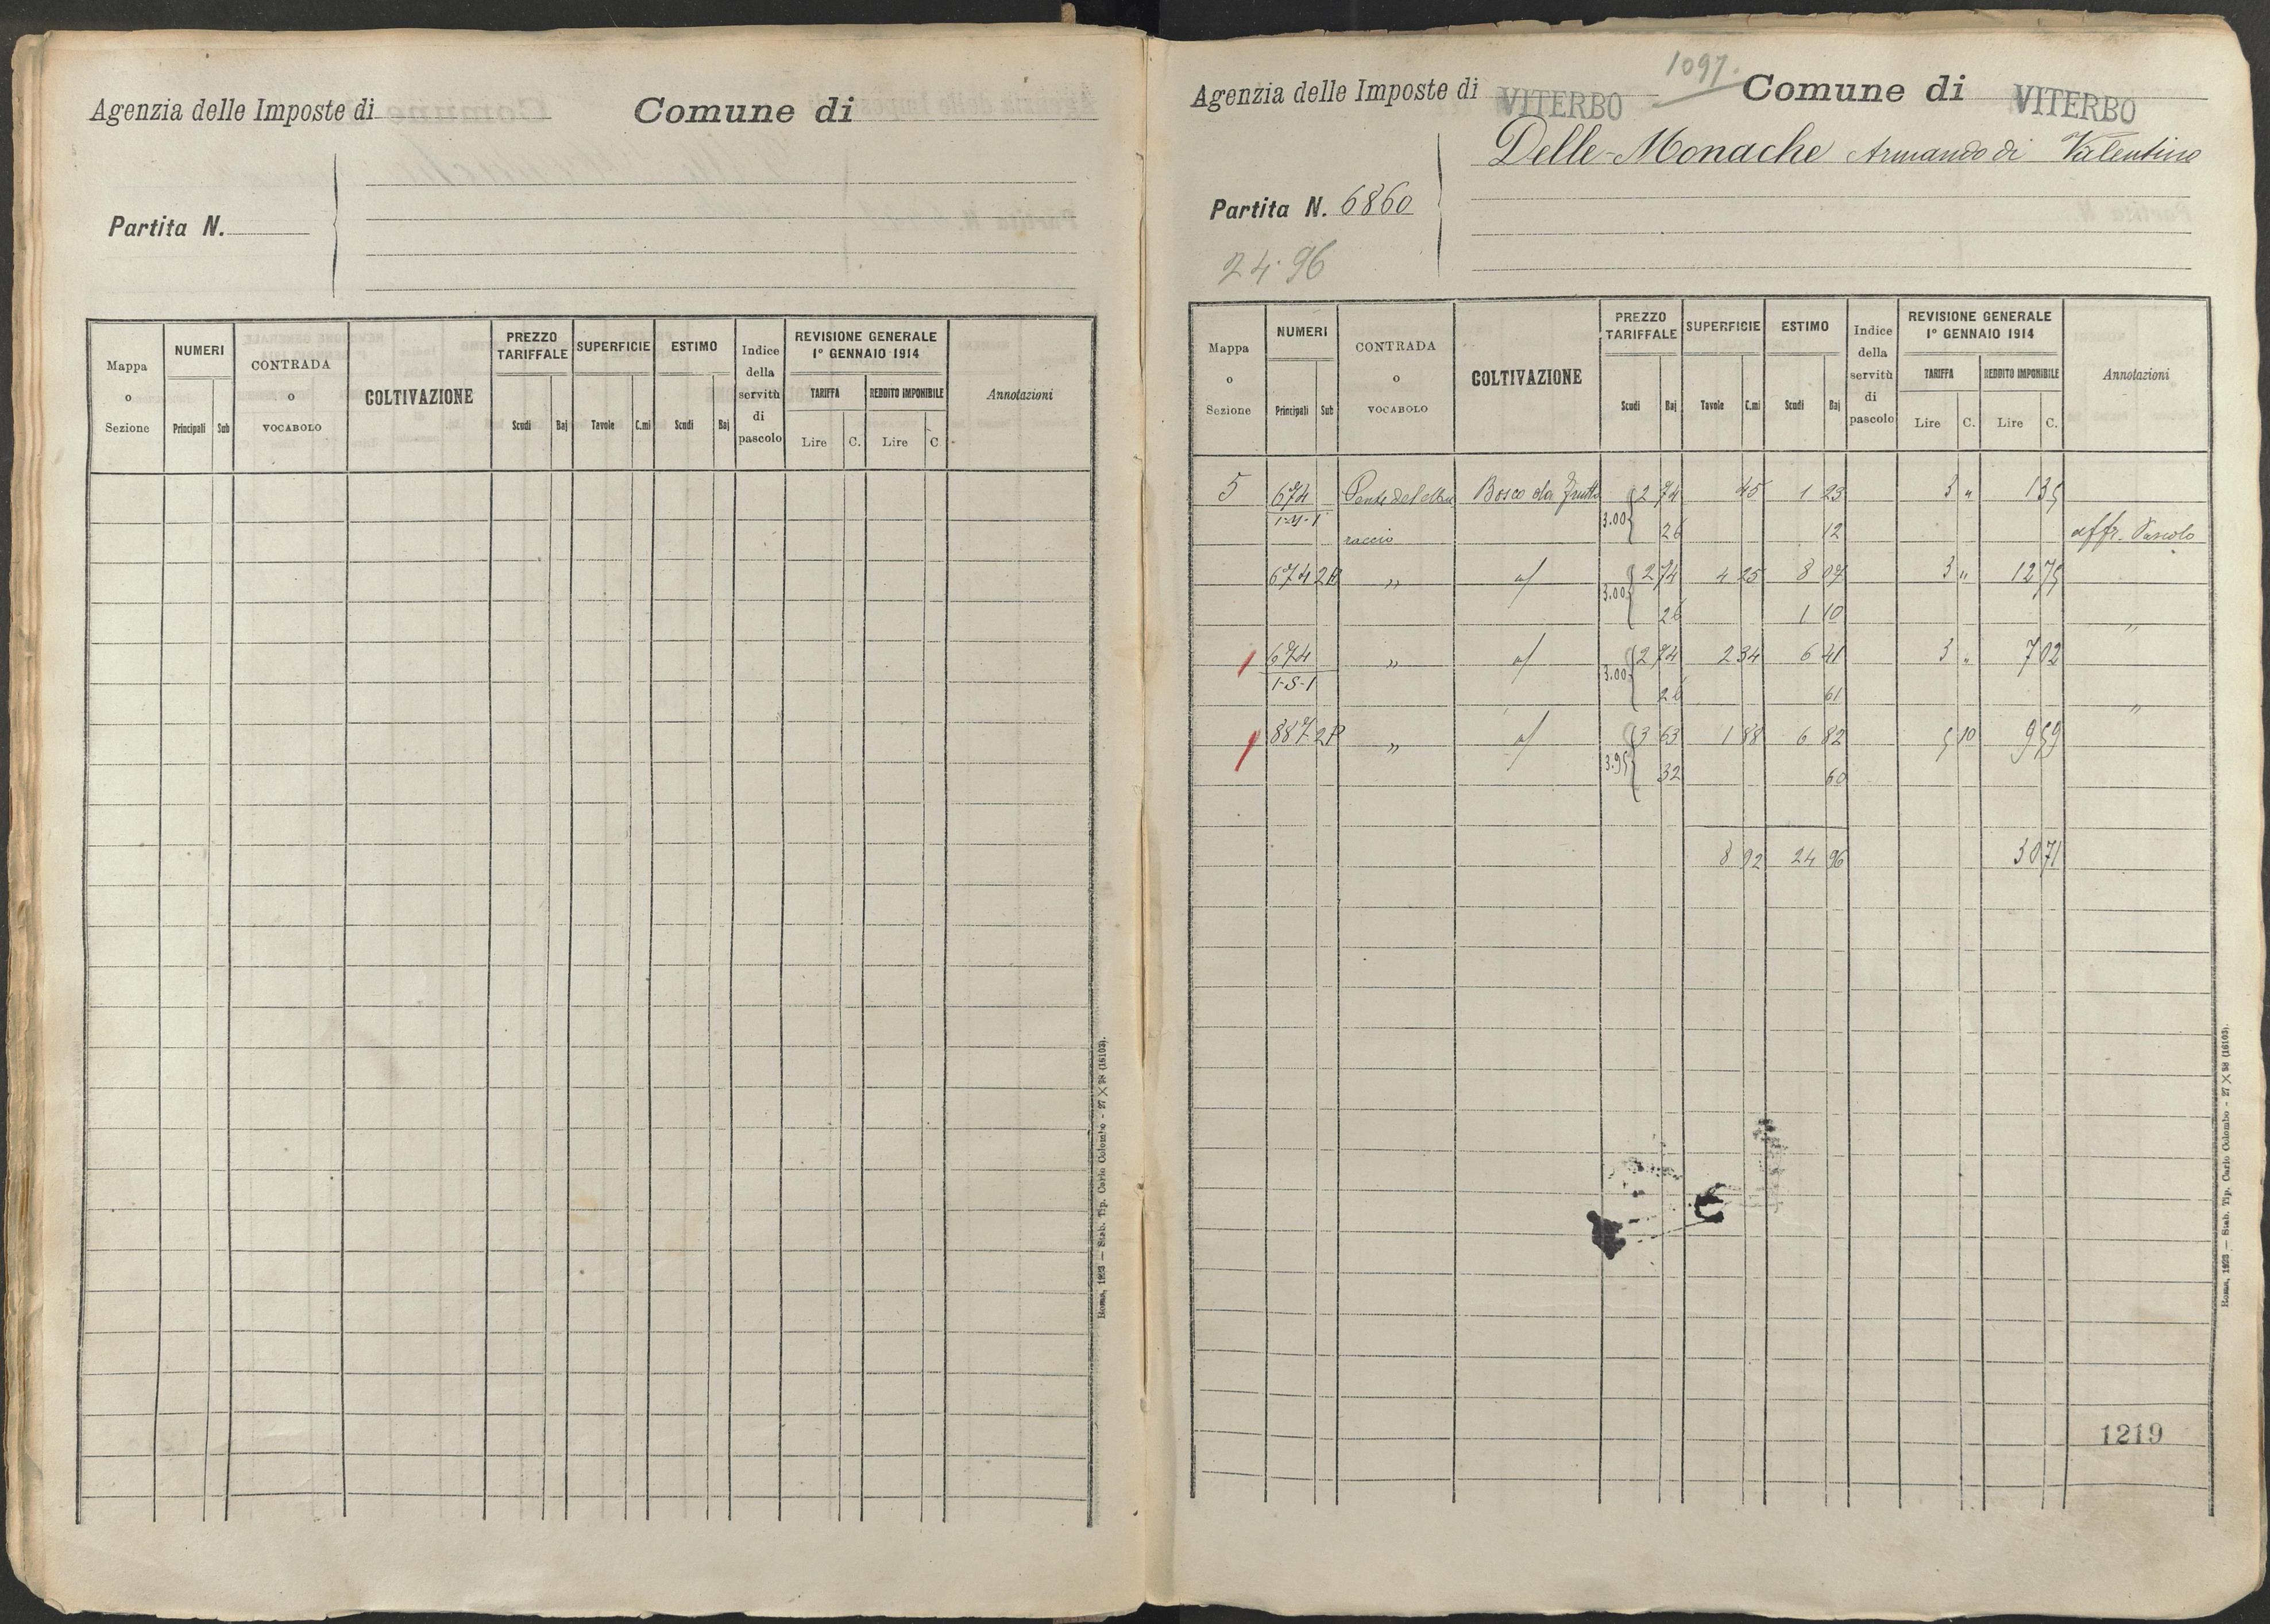 Agenzia delle Imposte di
Comune di
Partita N.
Mappa o Sezione
NUMERI
Principali
Sub
CONTRADA o VOCABOLO
COLTIVAZIONE
PREZZO TARIFFALE
Scudi
Baj
SUPERFICIE
Tavole
C.mi
ESTIMO
Scudi
Baj
Indice della servitù di pascolo
REVISIONE GENERALE 1º GENNAIO 1914
TARIFFA
Lire
C.
REDDITO IMPONIBILE
Lire
C.
Annotazioni
Roma, 1923 — Stab. Tip. Carlo Colombo - 27 X 38 (16103).
1097.
Agenzia delle Imposte di VITERBO
Comune di VITERBO
Delle-Monache Armando di Valentino
Partita N. 6860
24.96
Mappa o Sezione
NUMERI
Principali
Sub
CONTRADA o VOCABOLO
COLTIVAZIONE
PREZZO TARIFFALE
Scudi
Baj
SUPERFICIE
Tavole
C.mi
ESTIMO
Scudi
Baj
Indice della servitù di pascolo
REVISIONE GENERALE 1º GENNAIO 1914
TARIFFA
Lire
C.
REDDITO IMPONIBILE
Lire
C.
Annotazioni
5 674 Bosco da frutto 2 74 45 1 23 3 " 1 35
3.00
raccio 26 12 affr. Pascolo
674 2 " 2 74 4 25 8 07 3 " 12 75
3.00
26 1 10 "
674 " 2 74 2 34 6 41 3 " 7 02
1-S-1 3.00
26 61 "
887 2 " 3 63 1 88 6 82 5 10 9 59
3.95
32 60
8 92 24 96 30 71
1219
Roma, 1923 — Stab. Tip. Carlo Colombo - 27 X 38 (16103).